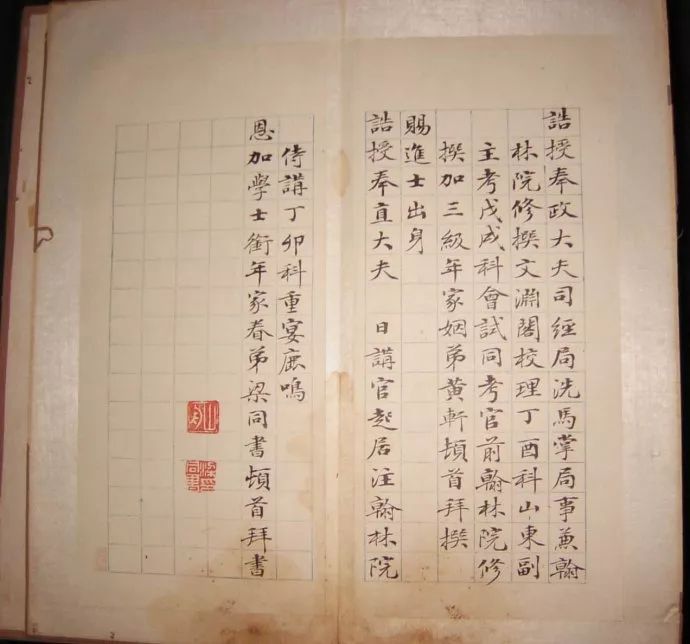 誥授奉政大夫司經局洗馬掌局事兼翰
林院修撰文淵閣校理丁酉科山東副
主考戊戌科會試同考官前翰林院修
撰加三級年家姻弟黃軒頓首拜撰
賜進士出身
誥授奉直大夫 日講官起居注翰林院
侍講丁卯科重宴鹿鳴
恩加學士銜年家眷弟梁同書頓首拜書
山舟
梁印同書